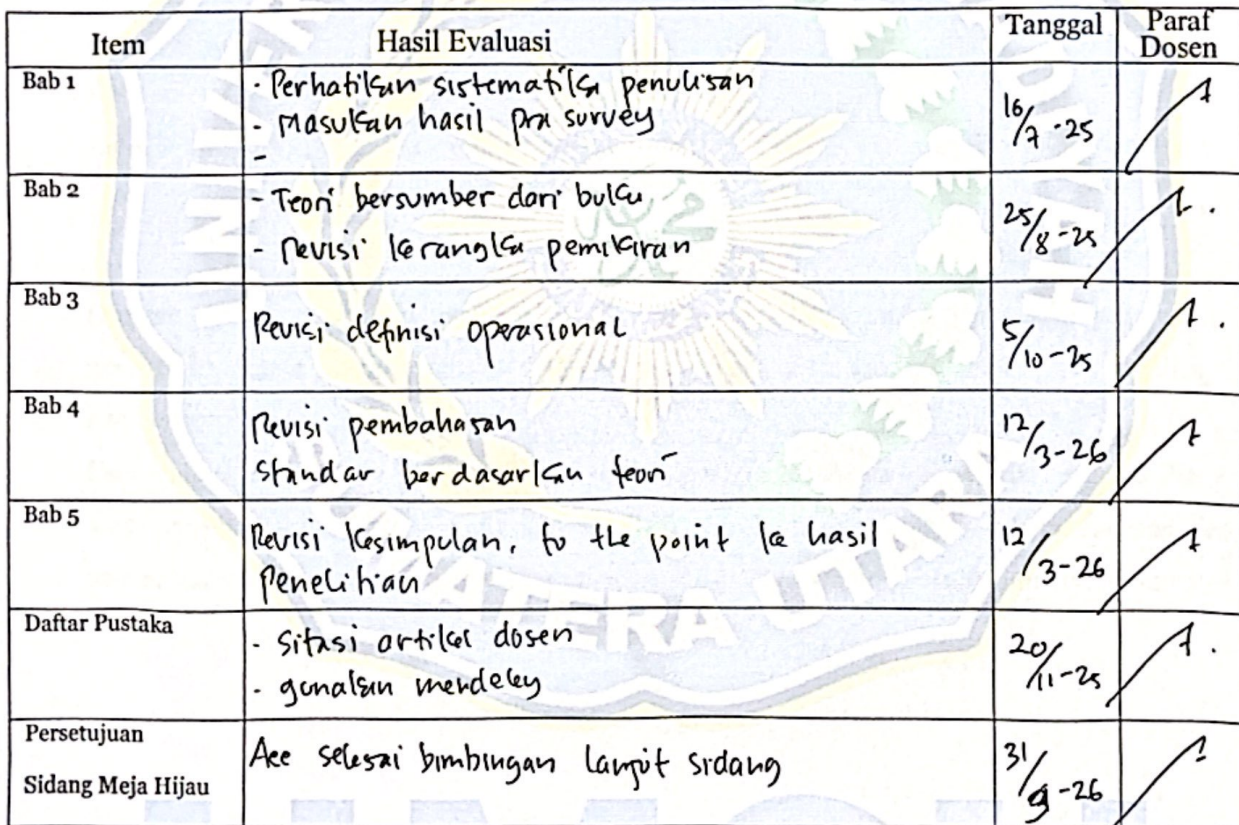 Item Hasil Evaluasi Tanggal Paraf Dosen
Bab 1
- Perhatikan sistematika penulisan
- Masukan hasil pra survey
-
16/7-25
Bab 2
- Teori bersumber dari buku
- Revisi kerangka pemikiran
25/8-25
Bab 3
Revisi definisi operasional
5/10-25
Bab 4
Revisi pembahasan
Standar berdasarkan teori
12/3-26
Bab 5
Revisi kesimpulan, to the point ke hasil
penelitian
12/3-26
Daftar Pustaka
- Sitasi artikel dosen
- gunakan mendeley
20/11-25
Persetujuan
Sidang Meja Hijau
Acc selesai bimbingan lanjut sidang
31/ -26
SUMATERA UTARA